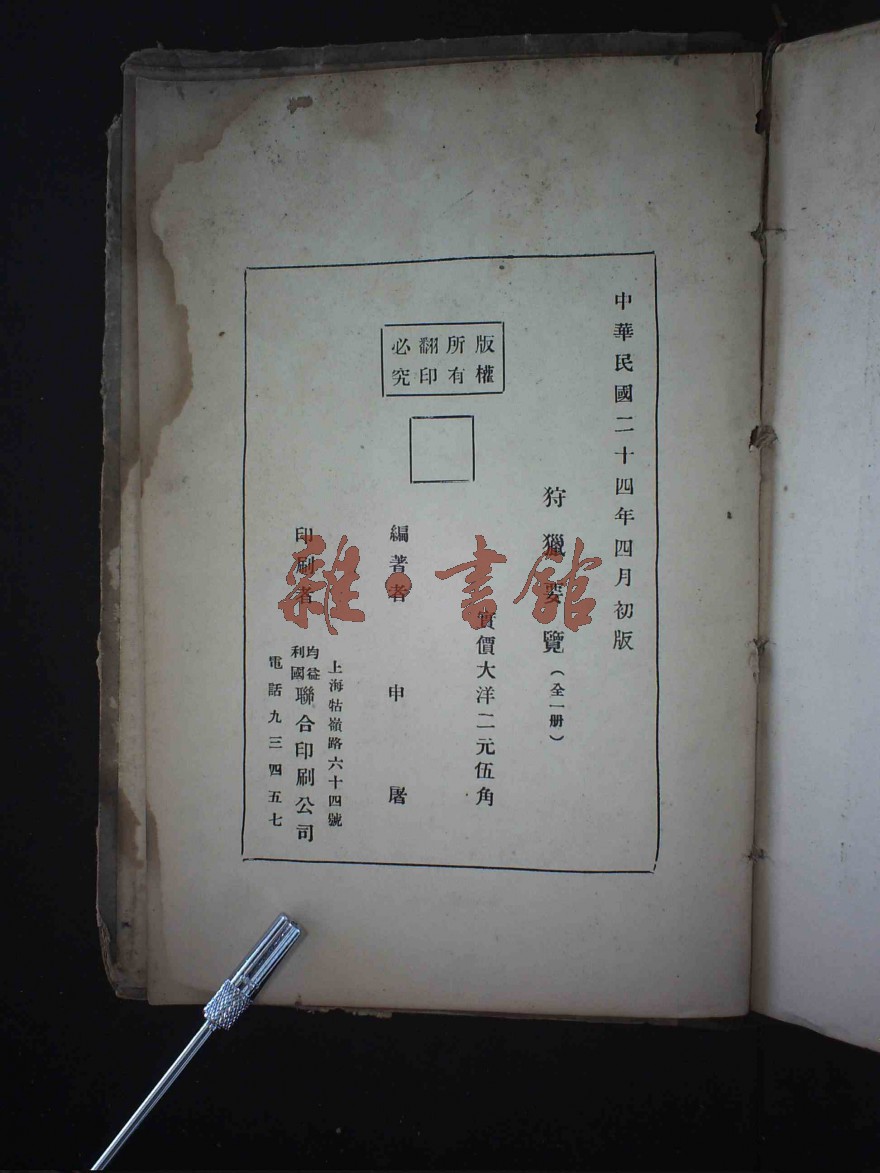 中華民國二十四年四月初版
狩獵要覽（全一册）
實價大洋二元伍角
版權
所有
翻印
必究
編著者 申屠
上海牯嶺路六十四號
印刷者 均益利國聯合印刷公司
電話九三四五七
雜·書館